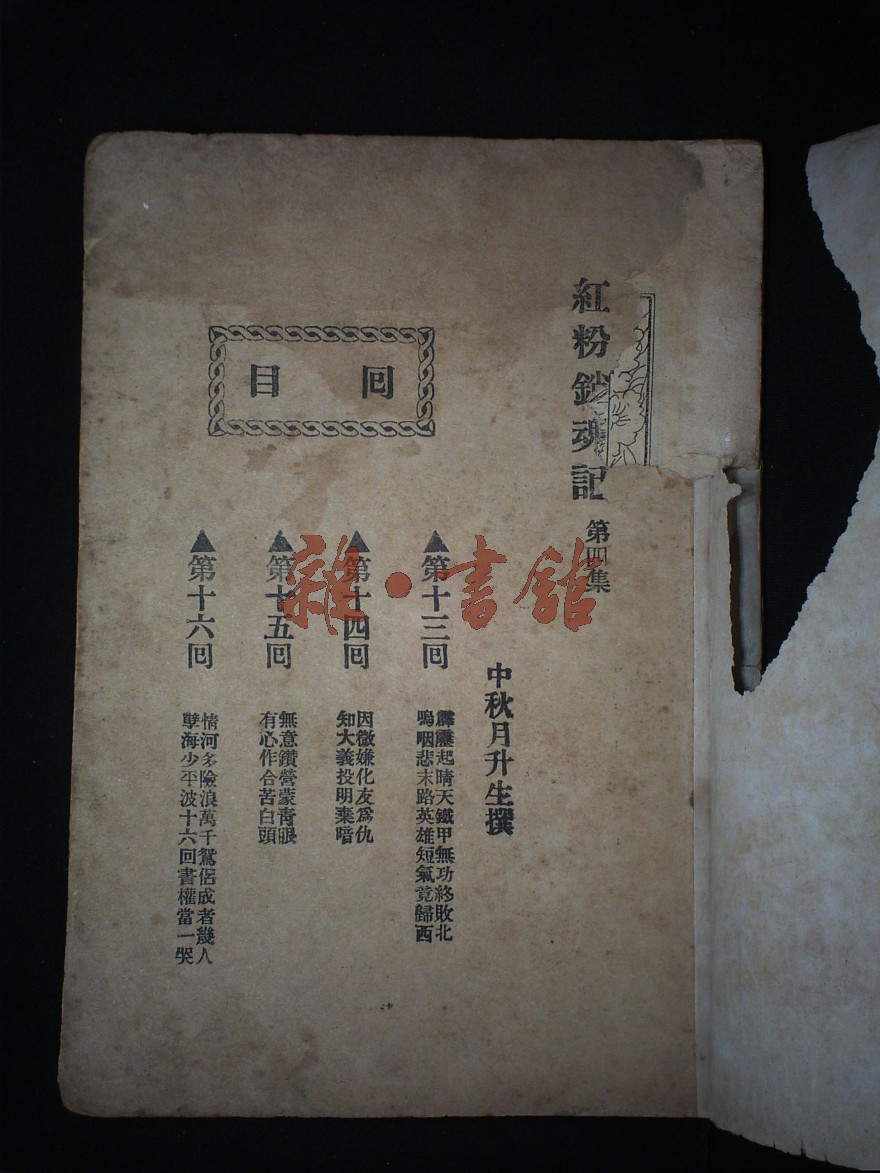 紅粉銷魂記
第四集
中秋月升生撰
回目
▲第十三回
霹靂起晴天鐵甲無功終敗北
嗚咽悲末路英雄短氣竟歸西
▲第十四回
因微嫌化友爲仇
知大義投明棄暗
▲第十五回
無意鑽營蒙靑眼
有心作合苦白頭
▲第十六回
情河多險浪萬千鴛侶成者幾人
孽海少平波十六回書權當一哭
雜·書館